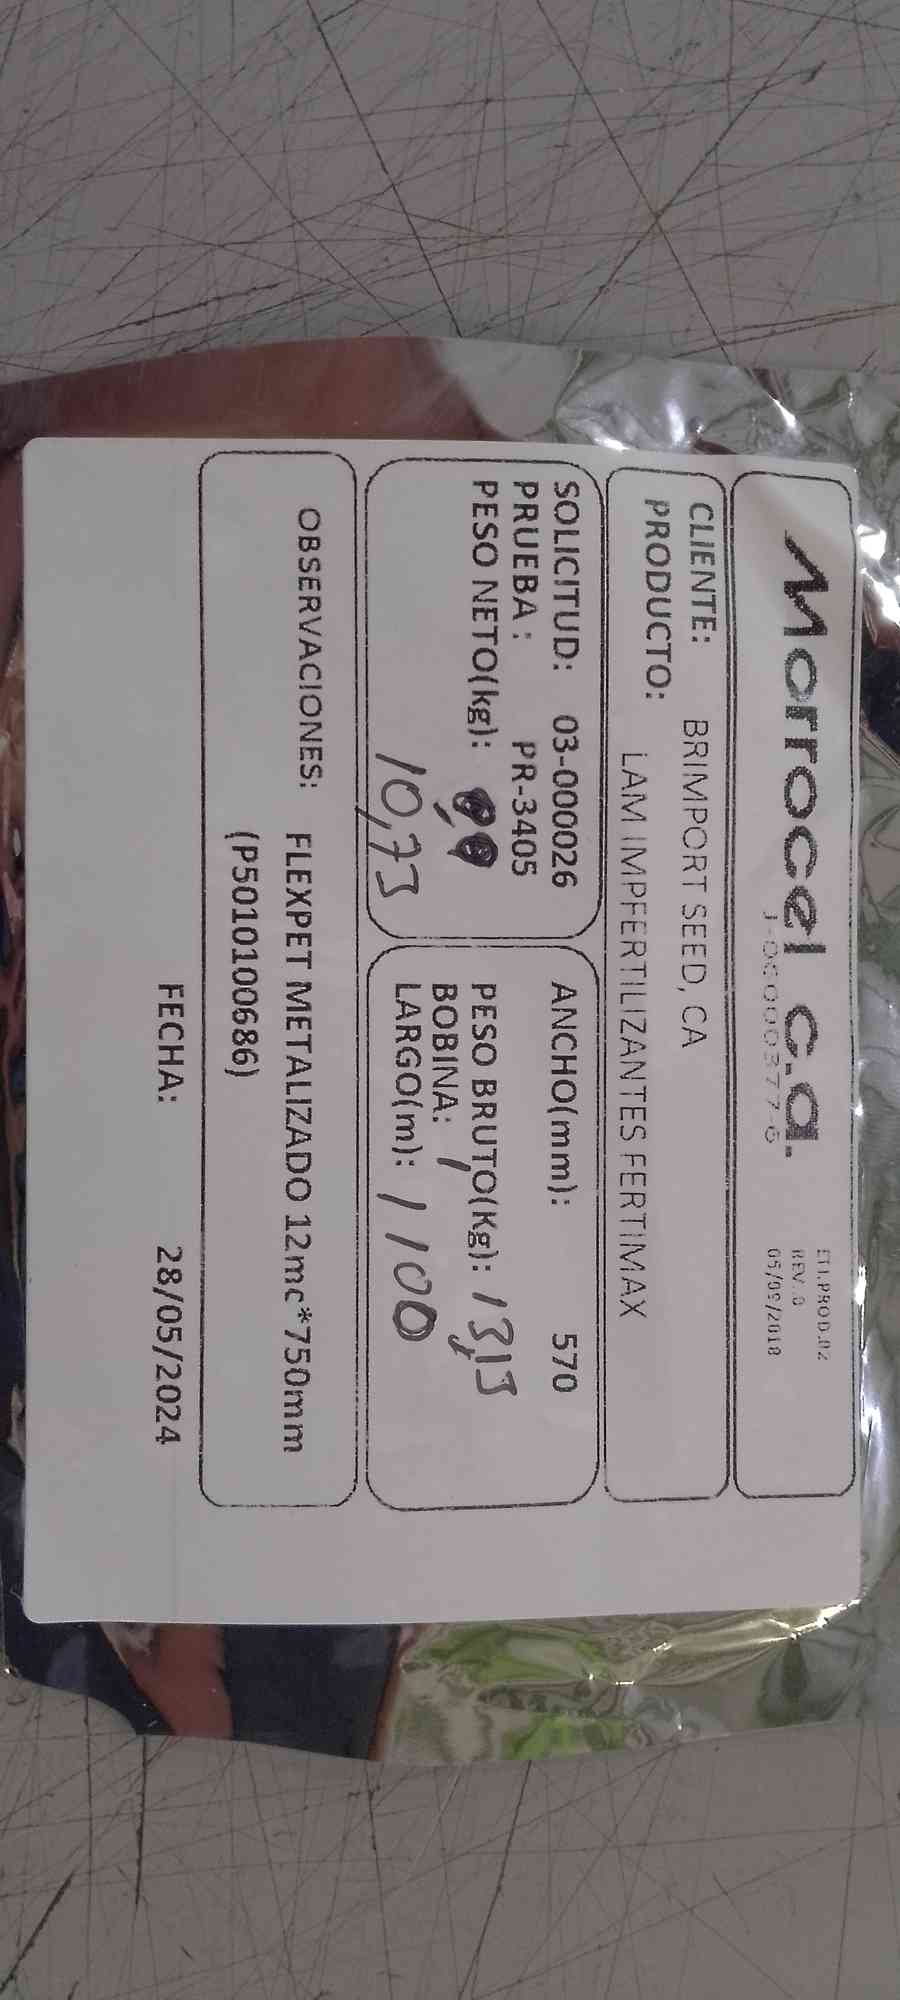 Morrocel c.a.
J-06000377-6
ETI.PROD.02
REV. 0
05/09/2018
CLIENTE: BRIMPORT SEED, CA
PRODUCTO: LAM IMPFERTILIZANTES FERTIMAX
SOLICITUD: 03-000026
PRUEBA : PR-3405
PESO NETO(kg):
10,73
ANCHO(mm): 570
PESO BRUTO(Kg): 13,13
BOBINA: 1
LARGO(m): 1100
OBSERVACIONES: FLEXPET METALIZADO 12mc*750mm
(P5010100686)
FECHA: 28/05/2024